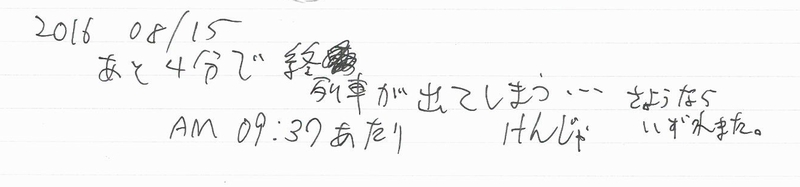 2016 08/15
あと4分で 終
列車が出てしまう… さようなら
AM 09:37あたり けんじゃ いずれまた。